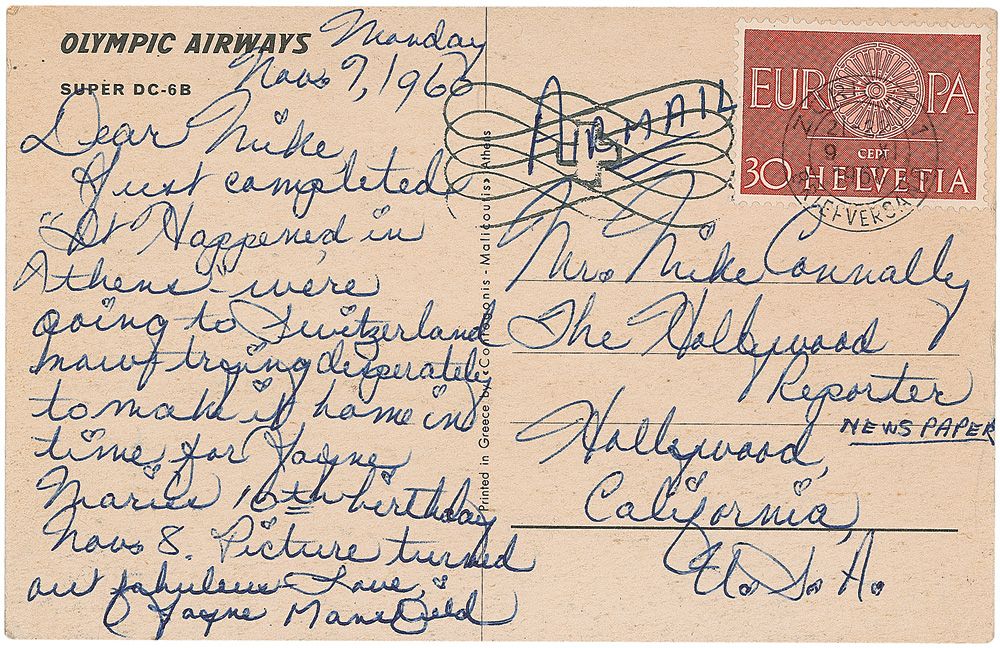 OLYMPIC AIRWAYS
SUPER DC-6B
Monday
Nov. 7, 1960
Dear Mike,
Just completed
"It Happened in
Athens" were
going to Switzerland
now trying desperately
to make it home in
time for Jayne
Maries 10th birthday
Nov. 8. Picture turned
out fabulous - Love,
Jayne Mansfield
Printed in Greece by: Contogonis - Malicoutis, Athens
AIRMAIL
EUROPA
CEPT
30 HELVETIA
BRIEFVERSAND
Mr. Mike Connally
The Hollywood
Reporter
NEWSPAPER
Hollywood,
California,
U.S.A.